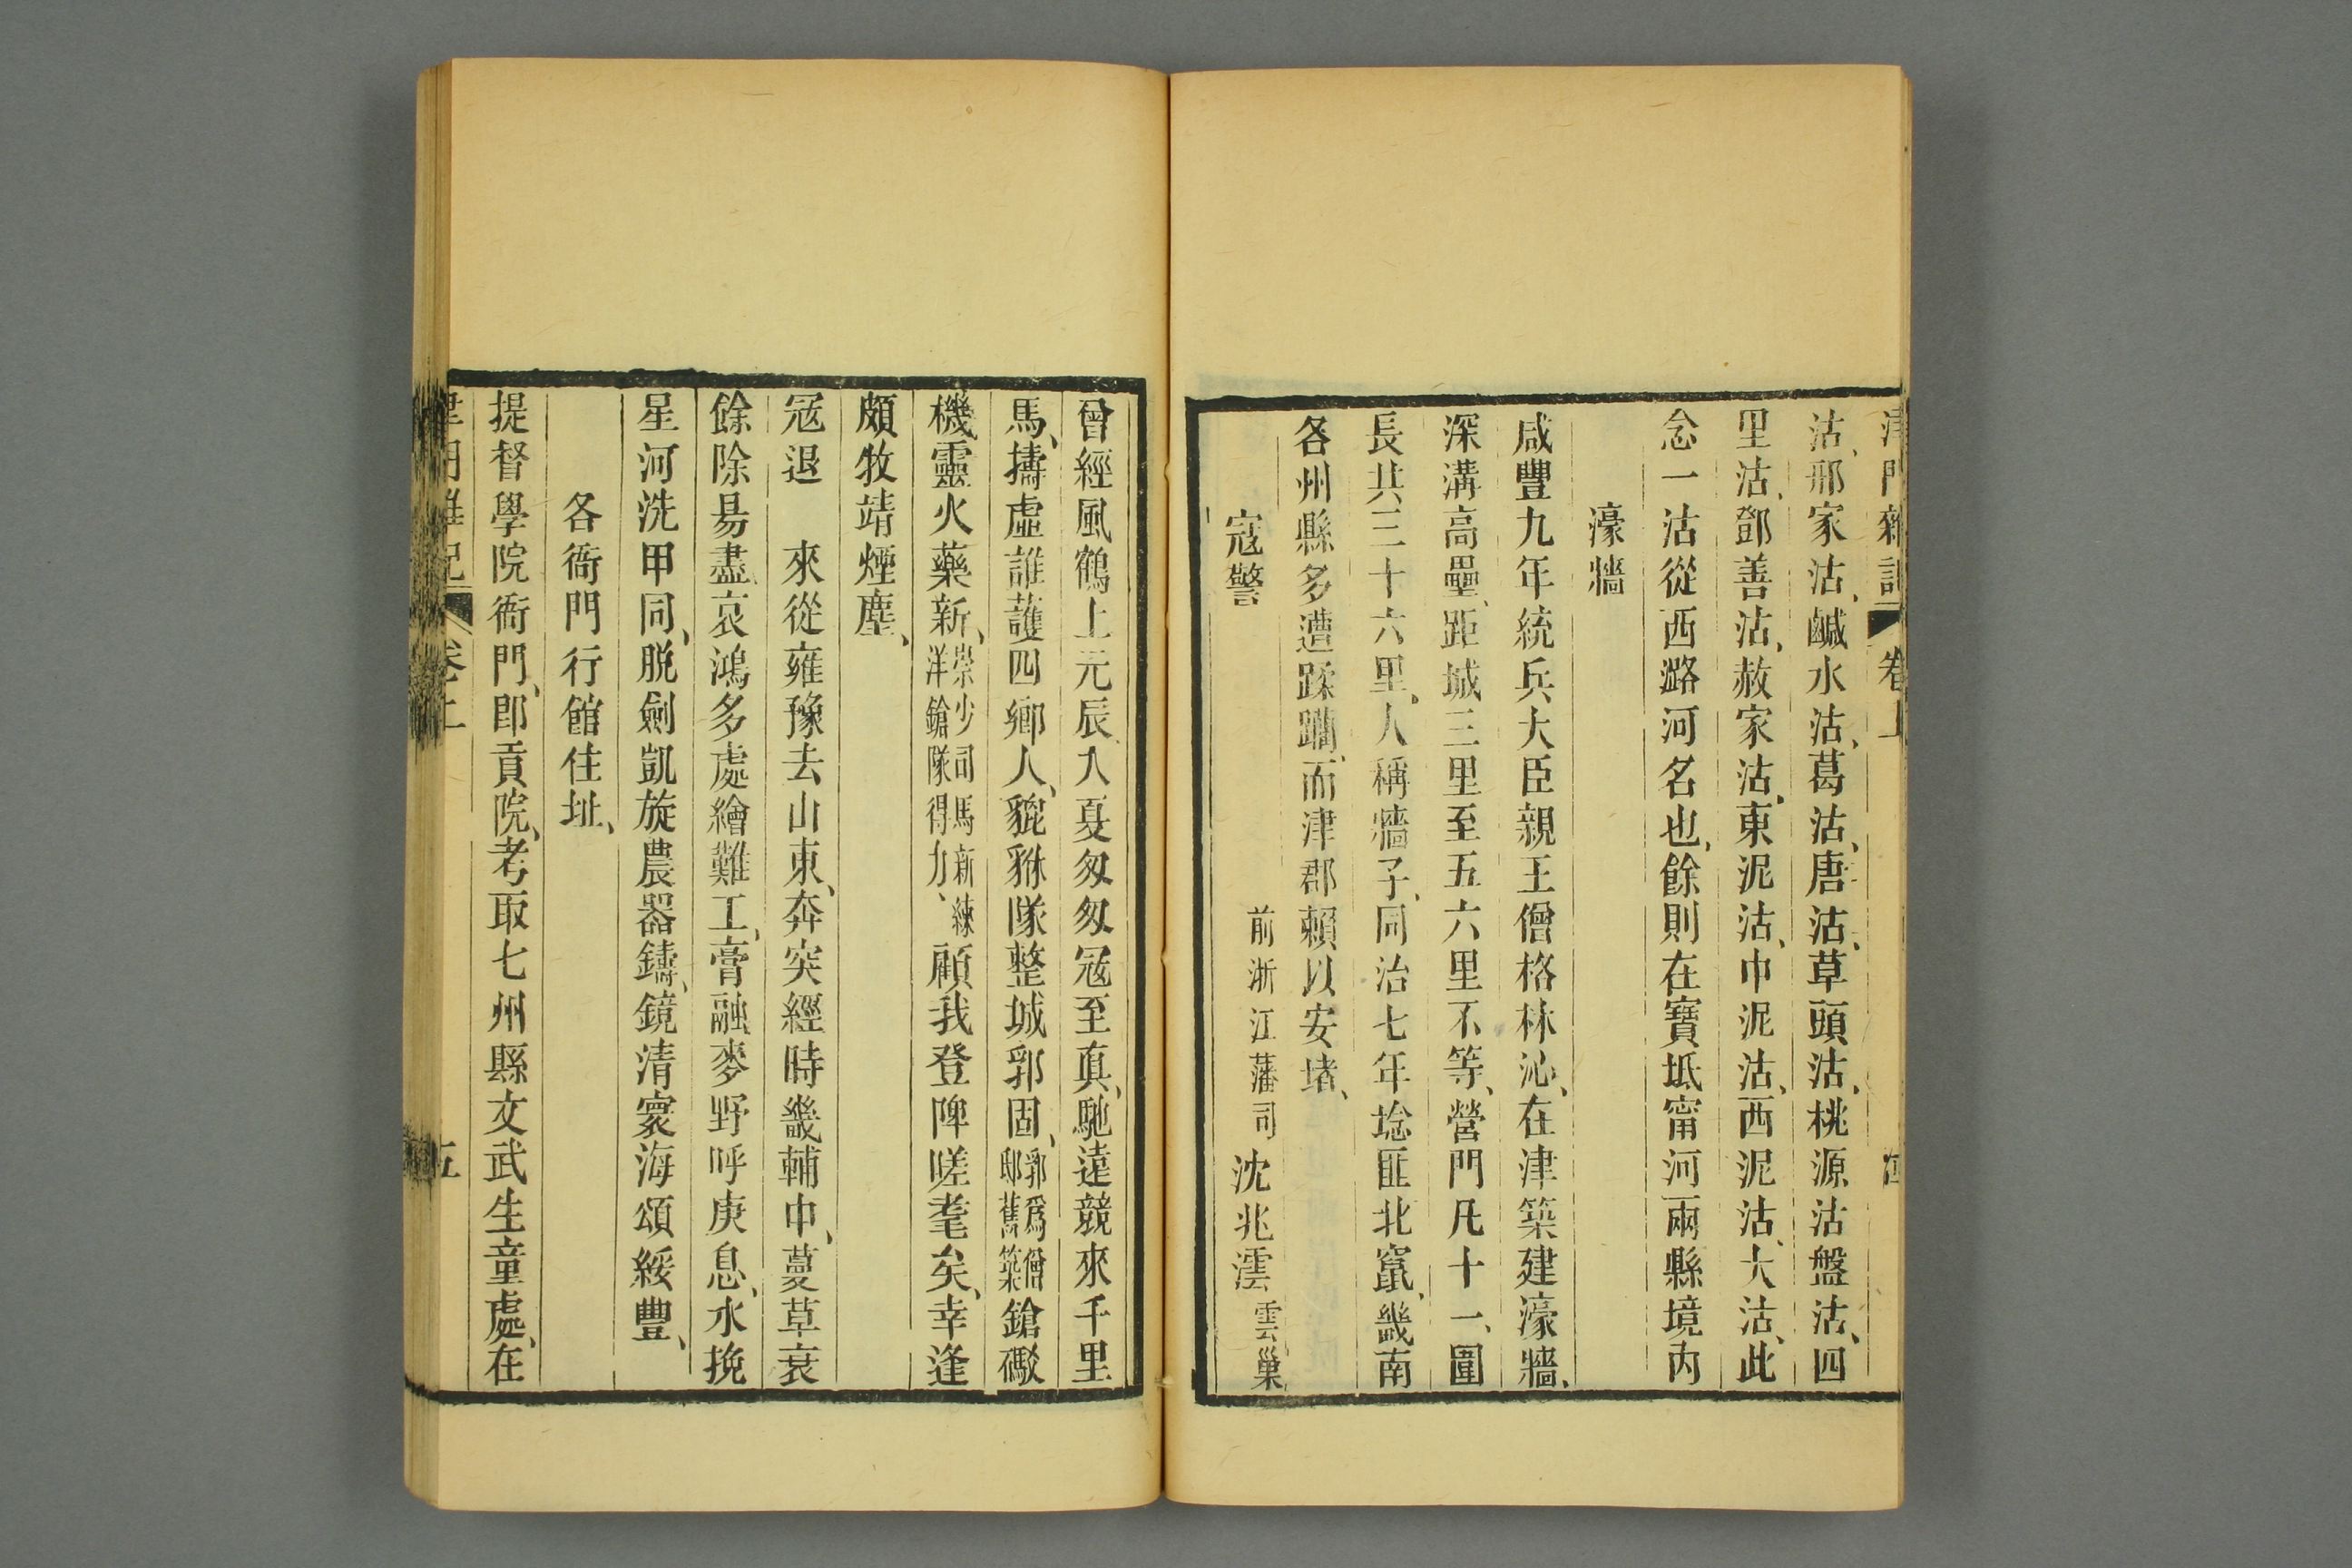 津門雜記 卷上 四
沽、邢家沽、鹹水沽、葛沽、唐沽、草頭沽、桃源沽、盤沽、四
里沽、鄧善沽、赦家沽、東泥沽、中泥沽、西泥沽、大沽、此
念一沽從西潞河名也、餘則在寶坻甯河兩縣境內
濠牆
咸豐九年統兵大臣親王僧格林沁、在津築建濠牆、
深溝高壘、距城三里至五六里不等、營門凡十一、圍
長共三十六里。人稱牆子、同治七年捻匪北竄、畿南
各州縣多遭蹂躪、而津郡賴以安堵、
寇警 前浙江藩司 沈兆澐 雲巢
曾經風鶴上元辰、入夏匆匆寇至真、馳遠競來千里
馬、擣虛誰護四鄉人、貔貅隊整城郭固、郭爲僧邸舊築鎗礮
機靈火藥新、崇少司馬新練洋鎗隊得力、顧我登陴嗟耄矣、幸逢
頗牧靖煙塵、
寇退 來從雍豫去山東、奔突經時畿輔中、蔓草衰
餘除易盡、哀鴻多處繪難工、膏融麥野呼庚息、水挽
星河洗甲同、脱劍凱旋農器鑄、鏡清寰海頌綏豐、
各衙門行館住址、
提督學院衙門、即貢院、考取七州縣文武生童處、在
津門雜記 卷上 五